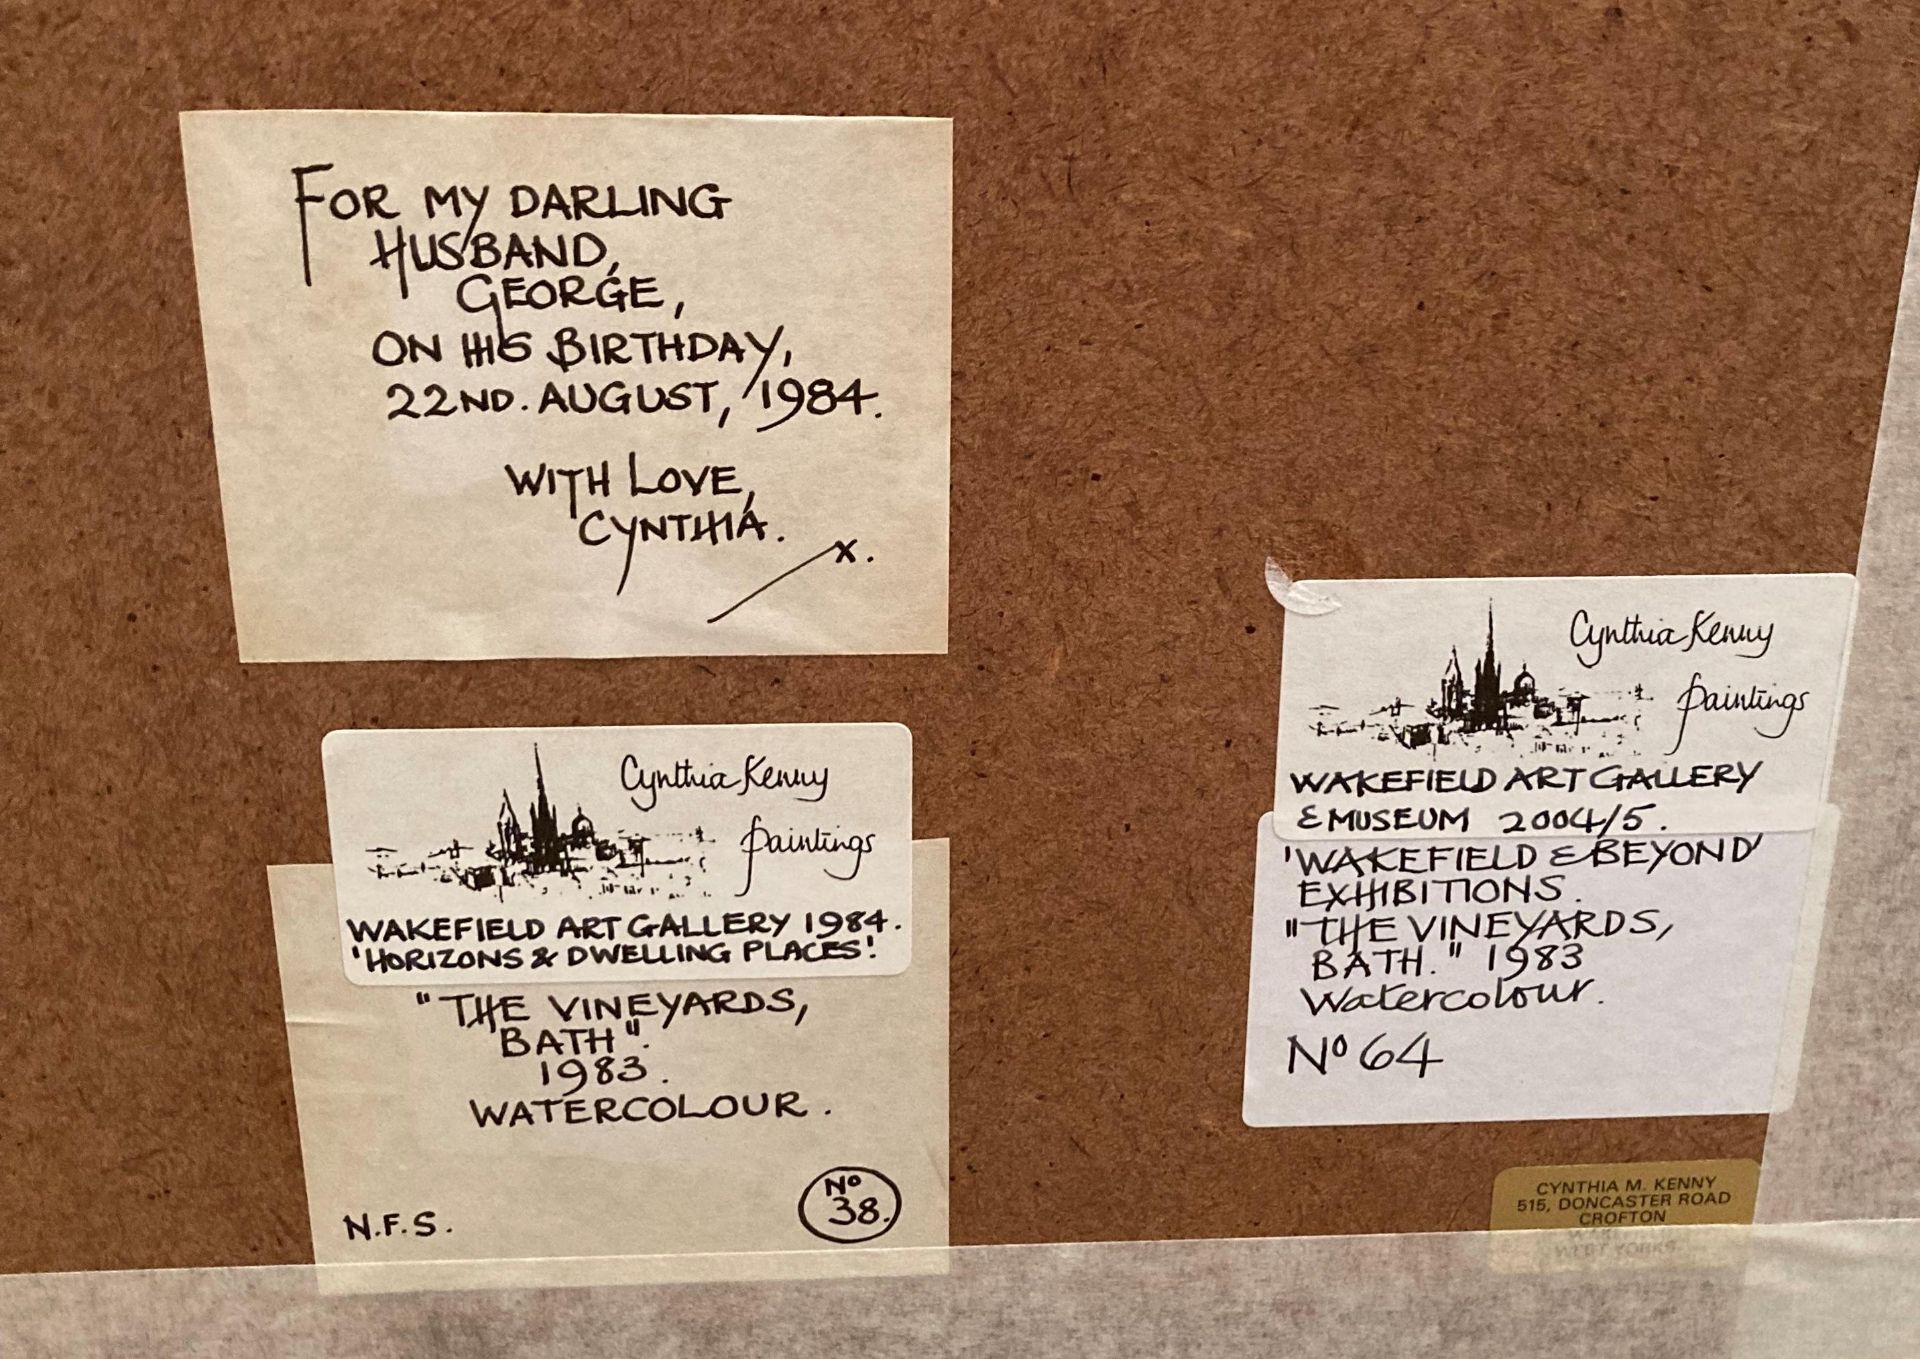 FOR MY DARLING
HUSBAND,
GEORGE,
ON HIS BIRTHDAY,
22ND. AUGUST, 1984.
WITH LOVE,
CYNTHIA.
x.
Cynthia Kenny
Paintings
WAKEFIELD ART GALLERY 1984.
'HORIZONS & DWELLING PLACES!
"THE VINEYARDS,
BATH".
1983.
WATERCOLOUR.
N.F.S.
No
38.
Cynthia Kenny
Paintings
WAKEFIELD ART GALLERY
& MUSEUM 2004/5.
'WAKEFIELD & BEYOND'
EXHIBITIONS.
"THE VINEYARDS,
BATH." 1983
Watercolour.
No 64
CYNTHIA M. KENNY
515, DONCASTER ROAD
CROFTON
WEST YORKS